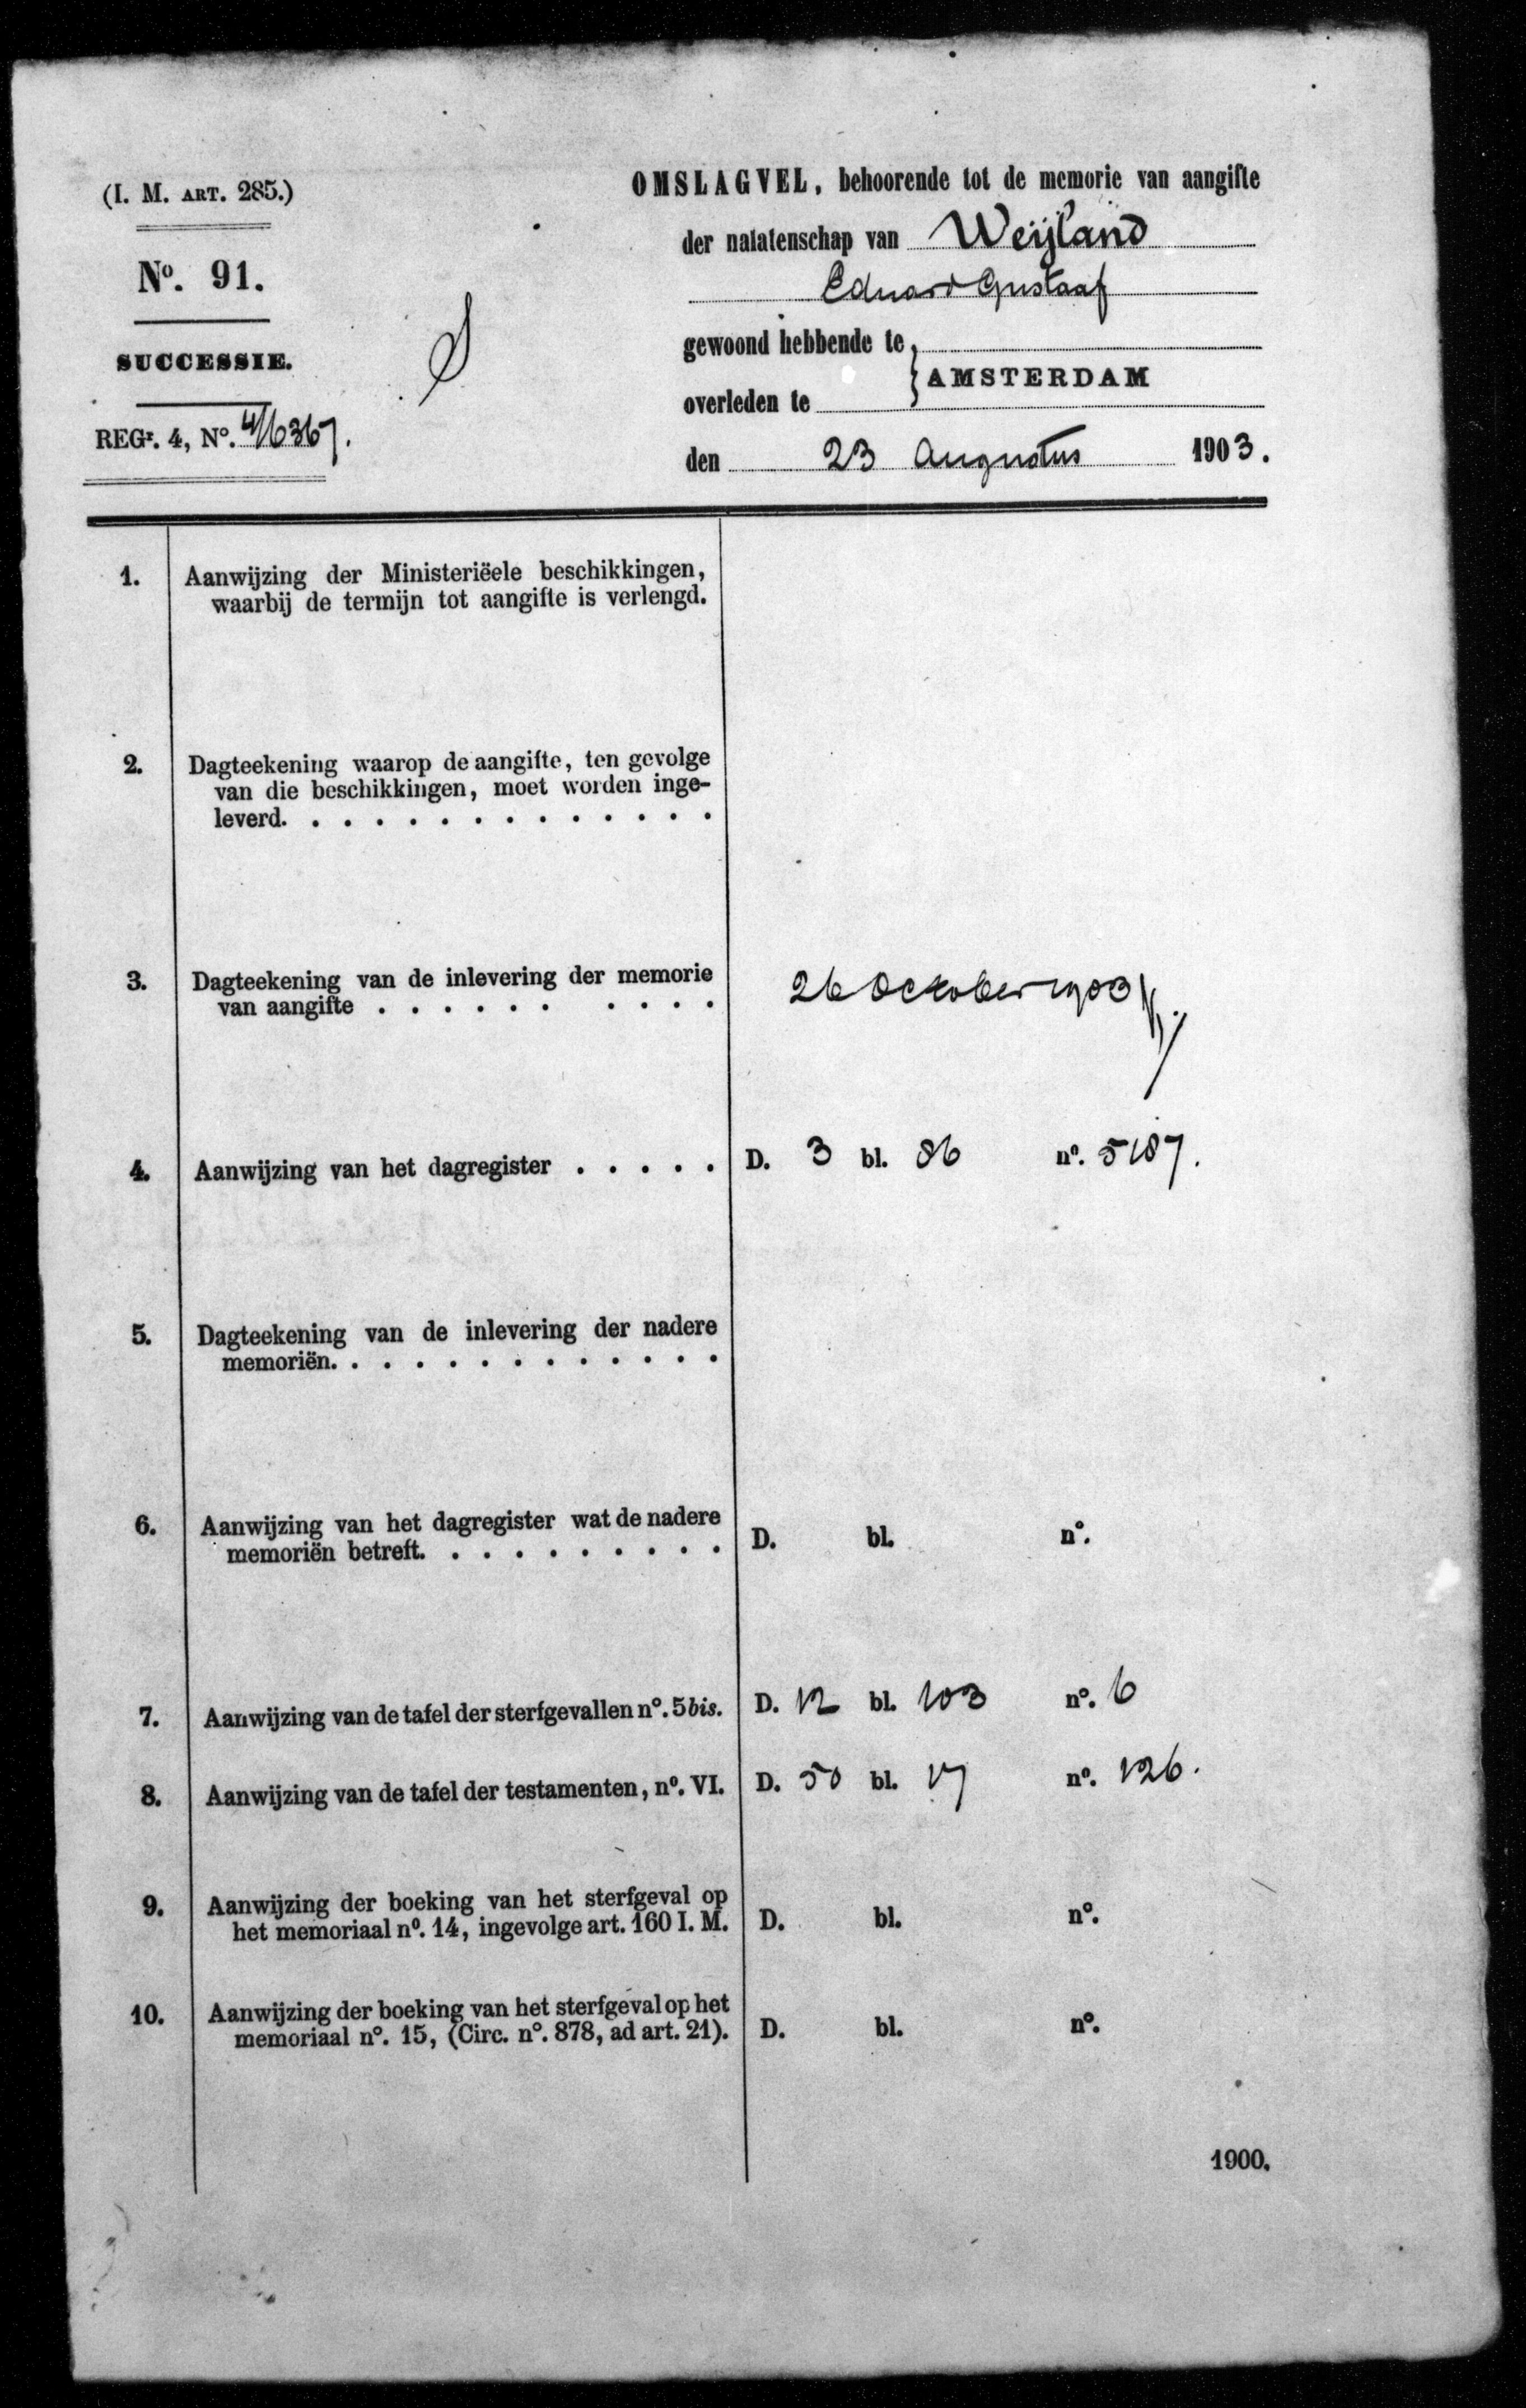 (I. M. ART. 285.)
No. 91.
SUCCESSIE.
REGr. 4, No. 4/6367.
S
OMSLAGVEL, behoorende tot de memorie van aangifte
der nalatenschap van Weijland
Eduard Gustaaf
gewoond hebbende te
AMSTERDAM
overleden te
den 23 Augustus 1903.
1. Aanwijzing der Ministeriëele beschikkingen,
waarbij de termijn tot aangifte is verlengd.
2. Dagteekening waarop de aangifte, ten gevolge
van die beschikkingen, moet worden inge-
leverd. . . . . . . . . . . . . .
3. Dagteekening van de inlevering der memorie
van aangifte . . . . . . . . . . 26 October 1903
4. Aanwijzing van het dagregister . . . . . D. 3 bl. 86 no. 5187.
5. Dagteekening van de inlevering der nadere
memoriën. . . . . . . . . . . . .
6. Aanwijzing van het dagregister wat de nadere
memoriën betreft. . . . . . . . . . D. bl. no.
7. Aanwijzing van de tafel der sterfgevallen no. 5bis. D. 12 bl. 103 no. 6
8. Aanwijzing van de tafel der testamenten, no. VI. D. 50 bl. 17 no. 126.
9. Aanwijzing der boeking van het sterfgeval op
het memoriaal no. 14, ingevolge art. 160 I. M. D. bl. no.
10. Aanwijzing der boeking van het sterfgeval op het
memoriaal no. 15, (Circ. no. 878, ad art. 21). D. bl. no.
1900.